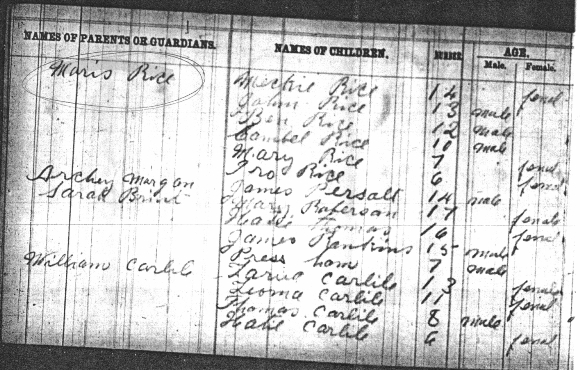 NAMES OF PARENTS OR GUARDIANS. NAMES OF CHILDREN. NUMBER AGE.
Male. Female.
Maris Rice Mectie Rice 14 femal
John Rice 13 male
Ben Rice 12 male
Cambel Rice 10 male
Mary Rice 7 femal
Rice 6 femal
Archey Morgan James Persall 14 male
Sarah Mary 17 female
Thomas 16 femal
James Jenkins 15 male
Press Lam 7 male
William Carlile Carlile 13 female
Leoma Carlile 11 femal
Thomas Carlile 8 male
Carlile 6 femal